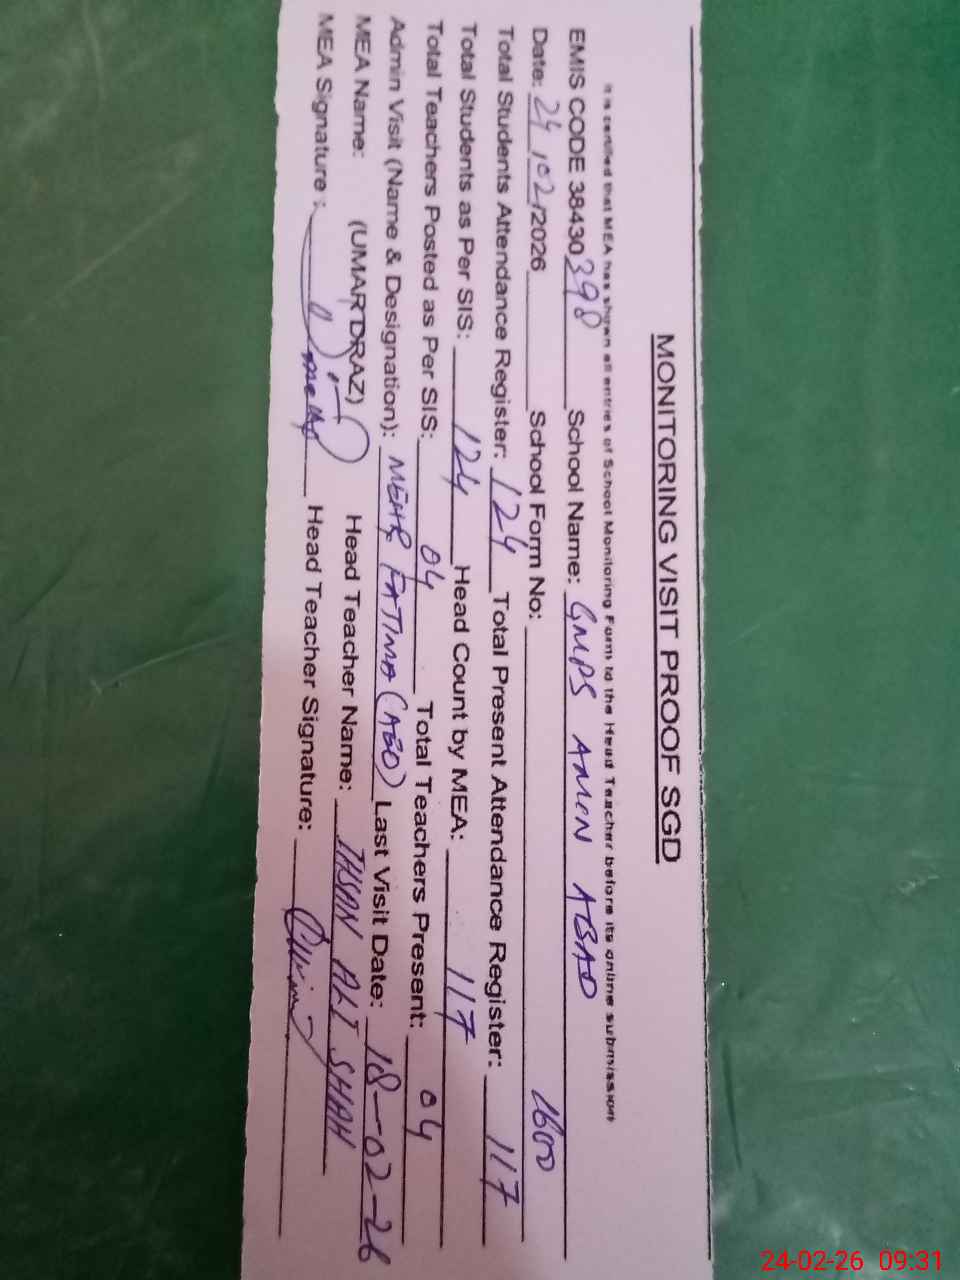 MONITORING VISIT PROOF SGD
It is certified that MEA has shown all entries of School Monitoring Form to the Head Teacher before its online submission
EMIS CODE 38430398 School Name: GMPS AMEN ABAD
Date: 24/02/2026 School Form No: 1600
Total Students Attendance Register: 124 Total Present Attendance Register: 117
Total Students as Per SIS: 124 Head Count by MEA: 117
Total Teachers Posted as Per SIS: 04 Total Teachers Present: 04
Admin Visit (Name & Designation): MEHR FATIMA (AEO) Last Visit Date: 18-02-26
MEA Name: (UMAR DRAZ) Head Teacher Name: IHSAN ALI SHAH
MEA Signature: Head Teacher Signature:
24-02-26 09:31